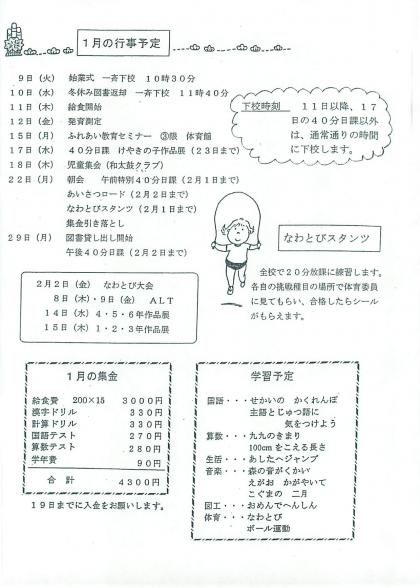 1月の行事予定
9日（火） 始業式 一斉下校 10時30分
10日（水） 冬休み図書返却 一斉下校 11時40分
11日（木） 給食開始
12日（金） 発育測定
15日（月） ふれあい教育セミナー ③限 体育館
17日（水） 40分日課 けやきの子作品展（23日まで）
18日（木） 児童集会（和太鼓クラブ）
22日（月） 朝会 午前特別40分日課（2月1日まで）
あいさつロード（2月2日まで）
なわとびスタンツ（2月1日まで）
集金引き落とし
29日（月） 図書貸し出し開始
午後40分日課（2月2日まで）
下校時刻 11日以降、17
日の40分日課以外
は、通常通りの時間
に下校します。
なわとびスタンツ
全校で20分放課に練習します。
各自の挑戦種目の場所で体育委員
に見てもらい、合格したらシール
がもらえます。
2月2日（金） なわとび大会
8日（木）・9日（金） ALT
14日（水）4・5・6年作品展
15日（木）1・2・3年作品展
1月の集金
給食費 200×15 3000円
漢字ドリル 330円
計算ドリル 330円
国語テスト 270円
算数テスト 280円
学年費 90円
合 計 4300円
19日までに入金をお願いします。
学習予定
国語・・・せかいの かくれんぼ
主語とじゅつ語に
気をつけよう
算数・・・九九のきまり
100cmをこえる長さ
生活・・・あしたへジャンプ
音楽・・・森の音がくかい
えがお かがやいて
こぐまの 二月
図工・・・おめんでへんしん
体育・・・なわとび
ボール運動